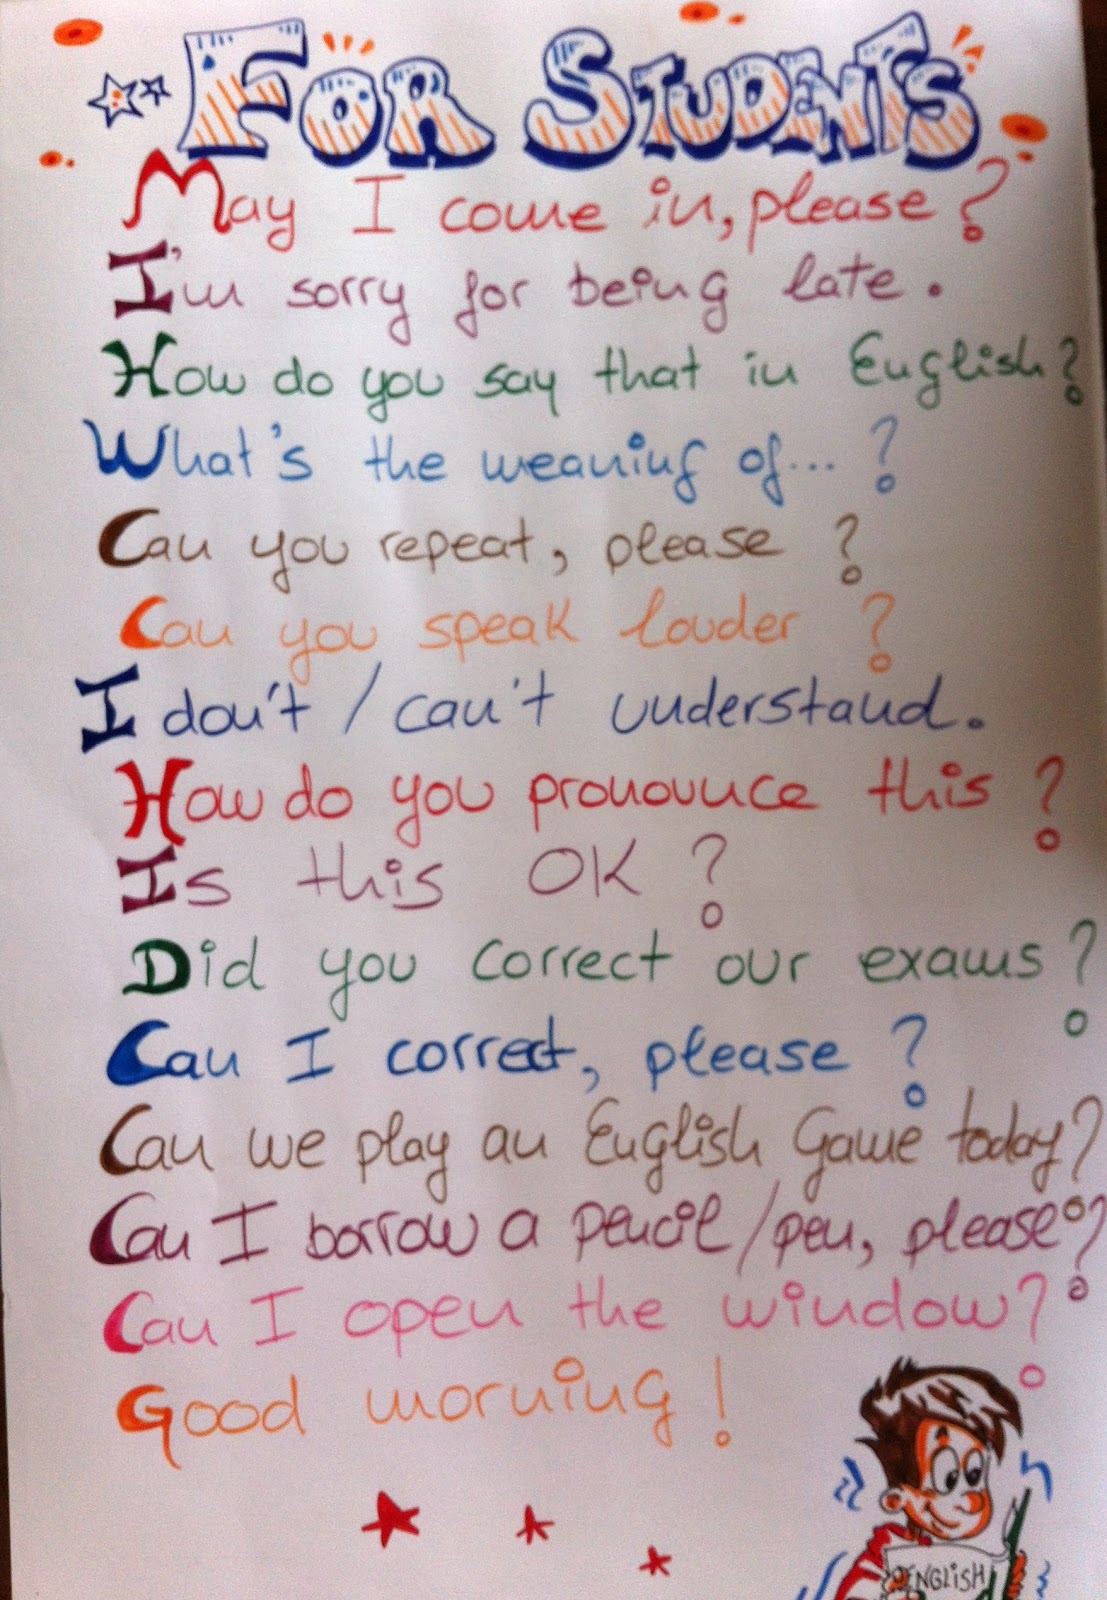 FOR STUDENTS
May I come in, please?
I'm sorry for being late.
How do you say that in English?
What's the meaning of...?
Can you repeat, please?
Can you speak louder?
I don't / can't understand.
How do you pronounce this?
Is this OK?
Did you correct our exams?
Can I correct, please?
Can we play an English Game today?
Can I borrow a pencil/pen, please?
Can I open the window?
Good morning!
ENGLISH